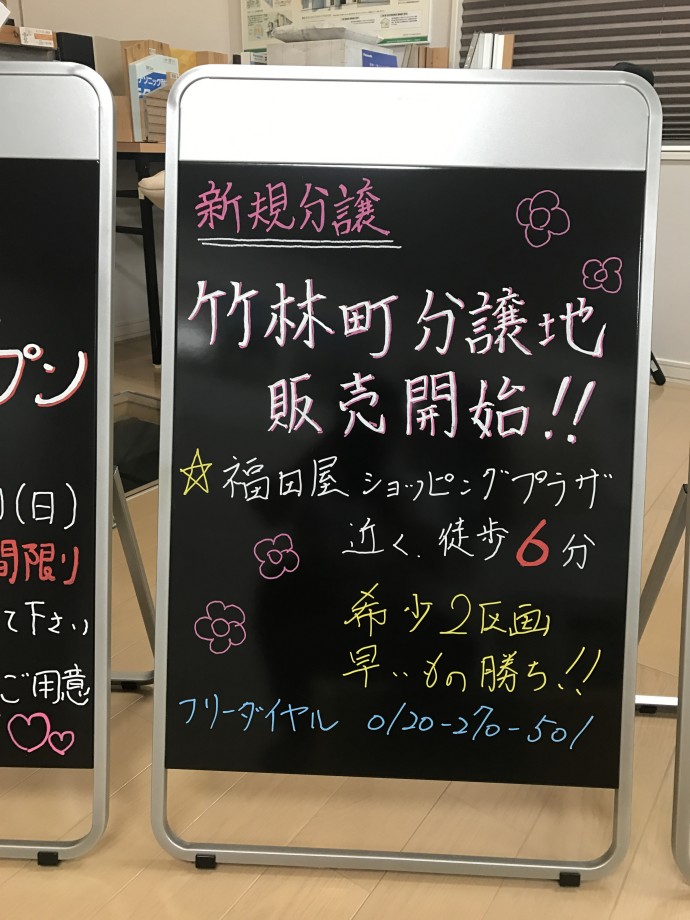 新規分譲
竹林町分譲地
販売開始!!
☆福田屋ショッピングプラザ
近く、徒歩6分
希少2区画
早いもの勝ち!!
フリーダイヤル 0120-270-501
プン
(日)
間限り
て下さい
ご用意